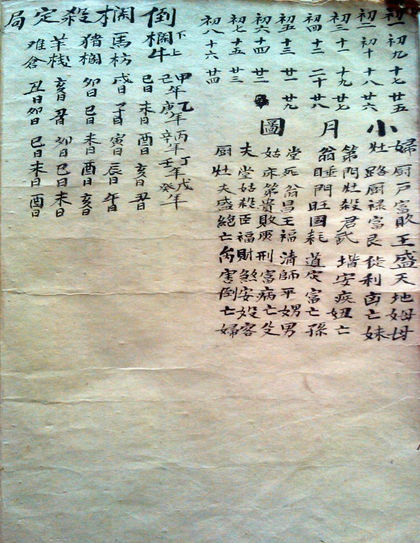 初一 初九 十七 廿五
初二 初十 十八 廿六
初三 十一 十九 廿七
初四 十二 二十 廿八
初五 十三 廿一 廿九
初六 十四 廿二
初七 十五 廿三
初八 十六 廿四
小月圖
婦厨戸富敗王盛天地姆母
灶路厨禄富良徒利亡妹
第阿灶殺君武安疾亡
翁睡門旺国耗道定富亡孫
堂死翁昌王福清師平娚男
姑床第貴敗刑富病亡父
夫堂姑殺臣福財煞安殺客
厨灶夫盛絶亡害倒亡婦
倒欄殺定局
上下
甲己年
乙庚年
丙辛年
丁壬年
戊癸年
欄牛 巳日 未日 酉日 亥日 丑日
馬枋 戌日 子日 寅日 辰日 午日
猪欄 卯日 巳日 未日 酉日 亥日
羊棧 亥日 丑日 卯日 巳日 未日
难仓 丑日 卯日 巳日 未日 酉日